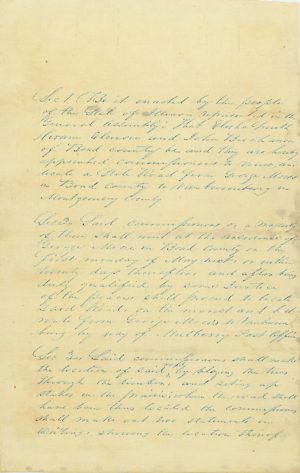 Sec 1 Be it enacted by the people
of the State of Illinois represented in the
General Assembly. That Elisha
Hiram and John
of Bond county be and they are hereby
appointed commissioners to view and
locate a State Road from George
in Bond county to Vanburensburg in
Montgomery County
Sec 2 Said commissioners or a majority
of them shall meet at the residence of
George in Bond County on the
first monday of May next or within
twenty days thereafter and after being
duly qualified by some Justice
of the peace shall proceed to locate
said Road, on the nearest and best
route from George to
burg by way of Mulberry Post Office
Sec 3 Said commissioners shall make
the location of said by blazing the trees
through the timber, and setting up
stakes in the prairie when the road shall
have been thus located the commissioners
shall make out two statements in
writing showing the location thereof